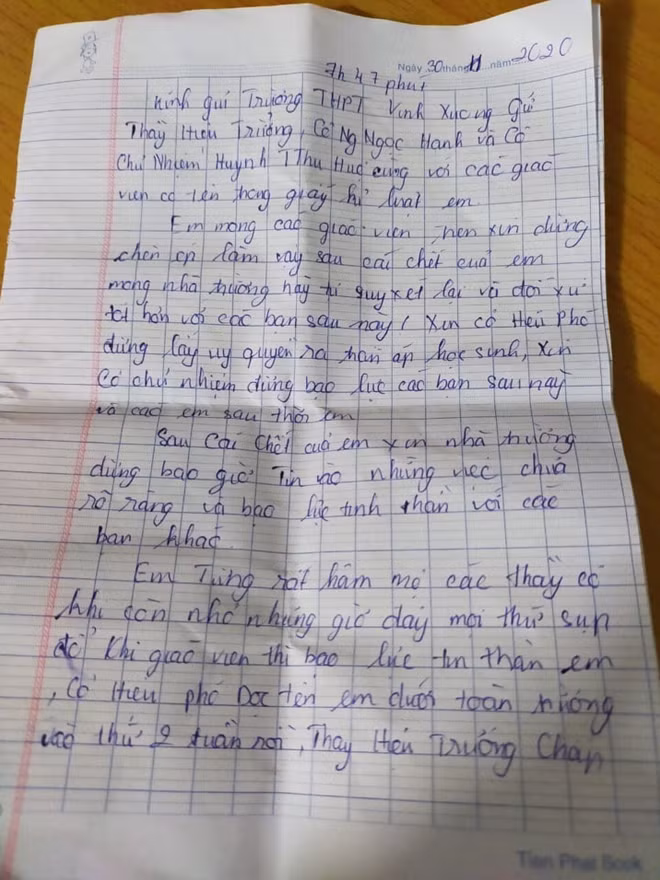 Ngày 30 tháng 11 năm 2020
7h 47 phút
Kính gửi Trường THPT Vĩnh Xương gửi
Thầy Hiệu Trưởng, Cô Ng Ngọc Hạnh và Cô
Chủ Nhiệm Huỳnh T Thu Huệ cùng với các giáo
viên có tên trong giấy kỉ luật em.
Em mong các giáo viên trên xin đừng
chèn ép lắm vậy sau cái chết của em
mong nhà trường hãy tự suy xét lại và đối xử
tốt hơn với các bạn sau này! Xin cô Hiệu Phó
đừng lấy uy quyền ra trấn áp học sinh, xin
Cô chủ nhiệm đừng bạo lực các bạn sau này
và các em sau thời em
Sau Cái Chết của em xin nhà trường
đừng bao giờ Tin vào những việc chưa
rõ ràng và bạo lực tinh thần với các
bạn khác.
Em Từng rất hâm mộ các thầy cô
khi còn nhỏ nhưng giờ đây mọi thứ sụp
đổ Khi giáo viên thì bạo lực tin thần em
, Cô Hiệu phó Đọc tên em dưới toàn trường
vào thứ 2 tuần rồi, Thầy Hiệu Trưởng Chấp
Tien Phat Book